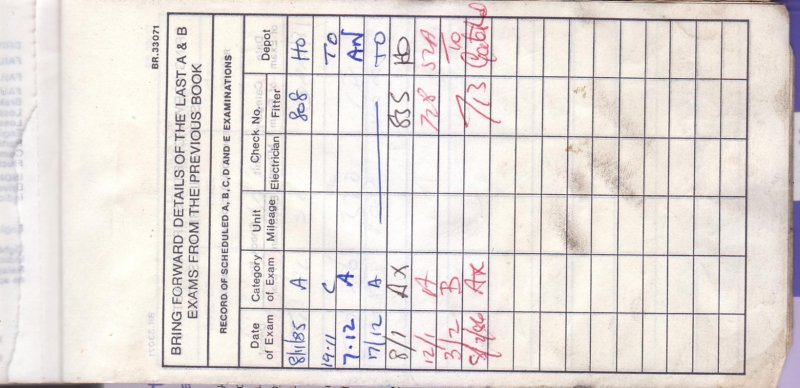 BR.33071
BRING FORWARD DETAILS OF THE LAST A & B
EXAMS FROM THE PREVIOUS BOOK
RECORD OF SCHEDULED A, B, C, D AND E EXAMINATIONS
Date of Exam Category of Exam Unit Mileage Check No. Electrician Fitter Depot
8/11/85 A 808 HO
19.11 C TO
7.12 A AN
17/12 A TO
8/1 AX 835 HO
12/1 A 728 SZA
3/2 B TO
8/2/86 AX 7/13